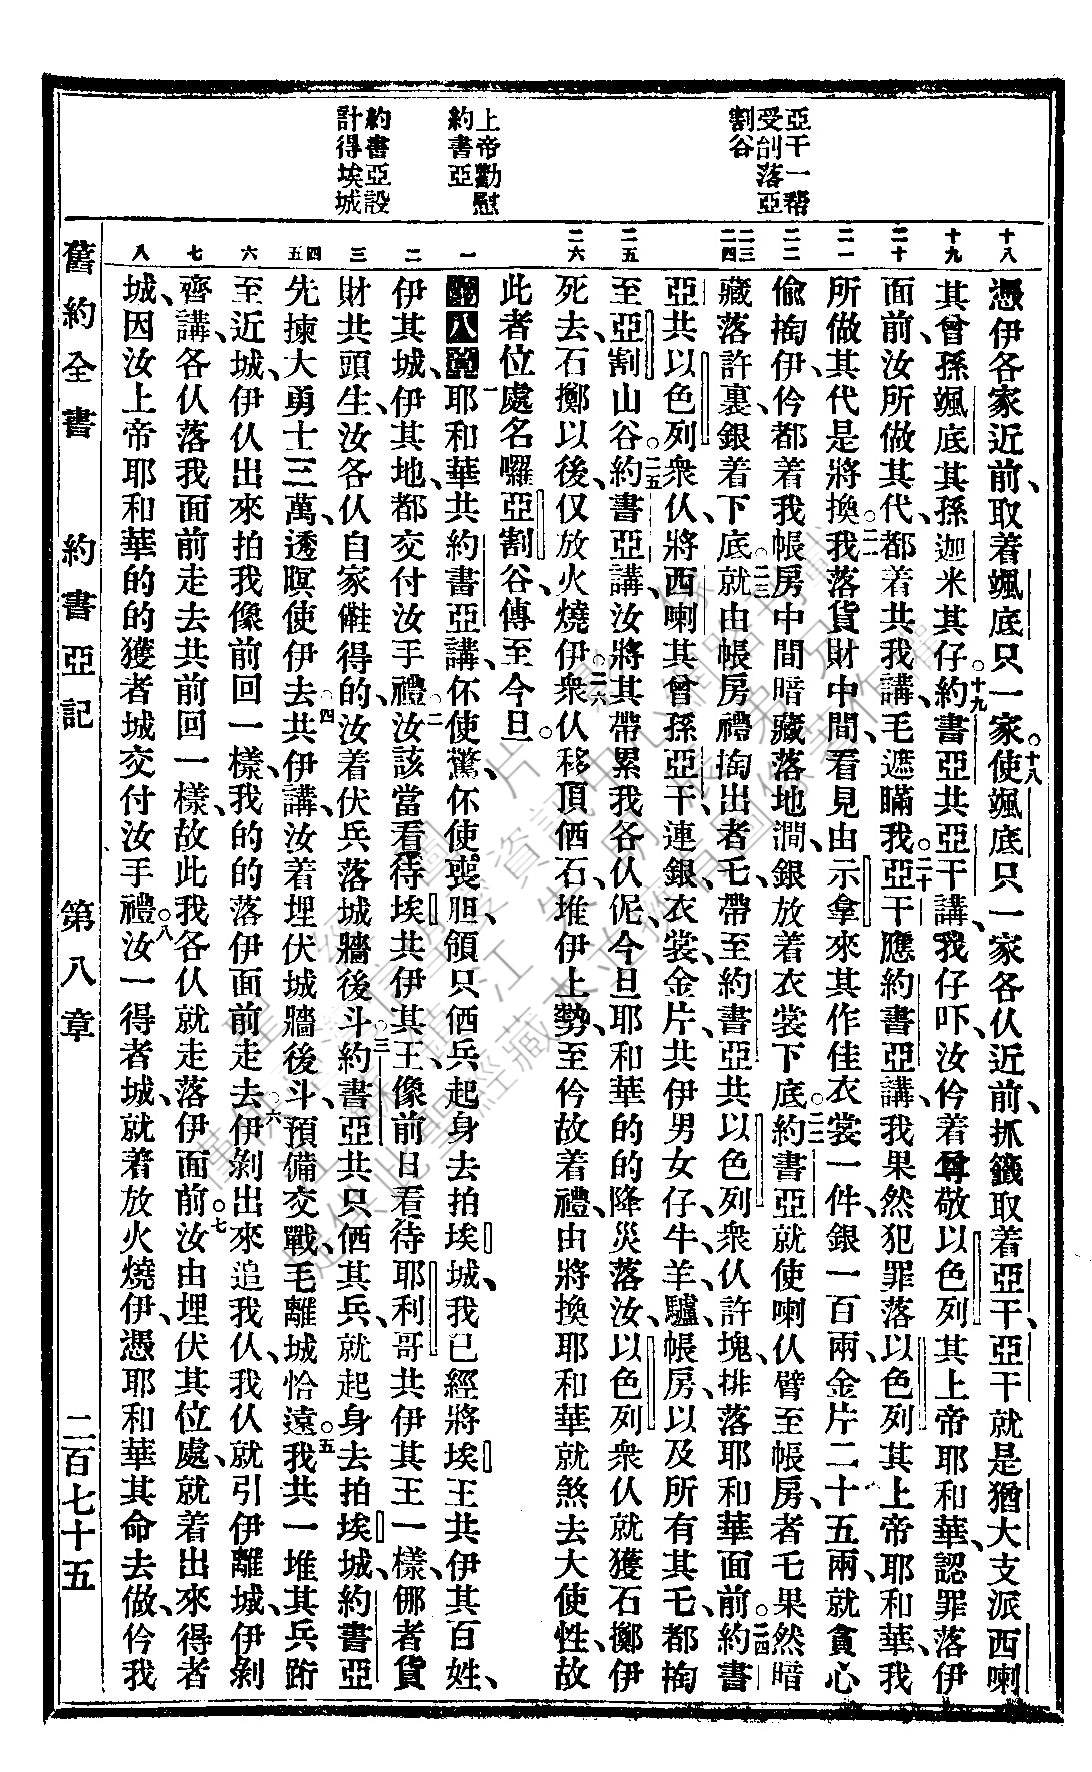 亞干一帮
受刣落亞
割谷
上帝勸慰
約書亞
約書亞設
計得埃城
十八
十九
二十
二一
二二
二三
二四
二五
二六
一
二
三
四
五
六
七
八
憑伊各家近前、取着颯底只一家。十八使颯底只一家各仏近前、抓籤取着亞干、亞干就是猶大支派西喇
其曾孫颯底其孫迦米其仔。十九約書亞共亞干講、我仔吓、汝仱着尊敬以色列其上帝耶和華、認罪落伊
面前、汝所做其代、都着共我講、毛遮瞞我。二十亞干應約書亞講、我果然犯罪落以色列其上帝耶和華、我
所做其代是將換。二一我落貨財中間、看見由示拿來其作佳衣裳一件、銀一百兩、金片二十五兩、就貪心
偸掏伊、仱都着我帳房中間暗藏落地澗、銀放着衣裳下底。二二約書亞就使喇仏臂至帳房、者乇果然暗
藏落許裏、銀着下底。二三就由帳房禮掏出者乇、帶至約書亞共以色列衆仏許塊、排落耶和華面前。二四約書
亞共以色列衆仏、將西喇其曾孫亞干、連銀、衣裳、金片、共伊男女仔、牛、羊、驢、帳房、以及所有其乇、都掏
至亞割山谷。二五約書亞講、汝將其帶累我各仏伲、今旦耶和華的的降災落汝、以色列衆仏就獲石擲伊
死去、石擲以後、仅放火燒伊。二六衆仏移頂倆石、堆伊上勢、至仱故着禮、由將換耶和華就煞去大使性、故
此者位處名囉亞割谷、傳至今旦。
第八章 一耶和華共約書亞講、伓使驚、伓使喪胆、領只倆兵起身去拍埃城、我已經將埃王共伊其百姓、
伊其城、伊其地、都交付汝手禮。二汝該當看待埃共伊其王、像前日看待耶利哥共伊其王一樣、㑚者貨
財共頭生、汝各仏自家僆得的、汝着伏兵落城牆後斗。三約書亞共只倆其兵、就起身去拍埃城、約書亞
先揀大勇士三萬、透暝使伊去。四共伊講、汝着埋伏城牆後斗、預備交戰、毛離城恰遠。五我共一堆其兵𨀤
至近城、伊仏出來拍我、像前回一樣、我的的落伊面前走去。六伊剝出來追我仏、我仏就引伊離城、伊剝
齊講、各仏落我面前走去、共前回一樣、故此我各仏就走落伊面前。七汝由埋伏其位處、就着出來得者
城、因汝上帝耶和華的的獲者城交付汝手禮。八汝一得者城、就着放火燒伊、憑耶和華其命去做、仱我
舊約全書　約書亞記　第八章　二百七十五